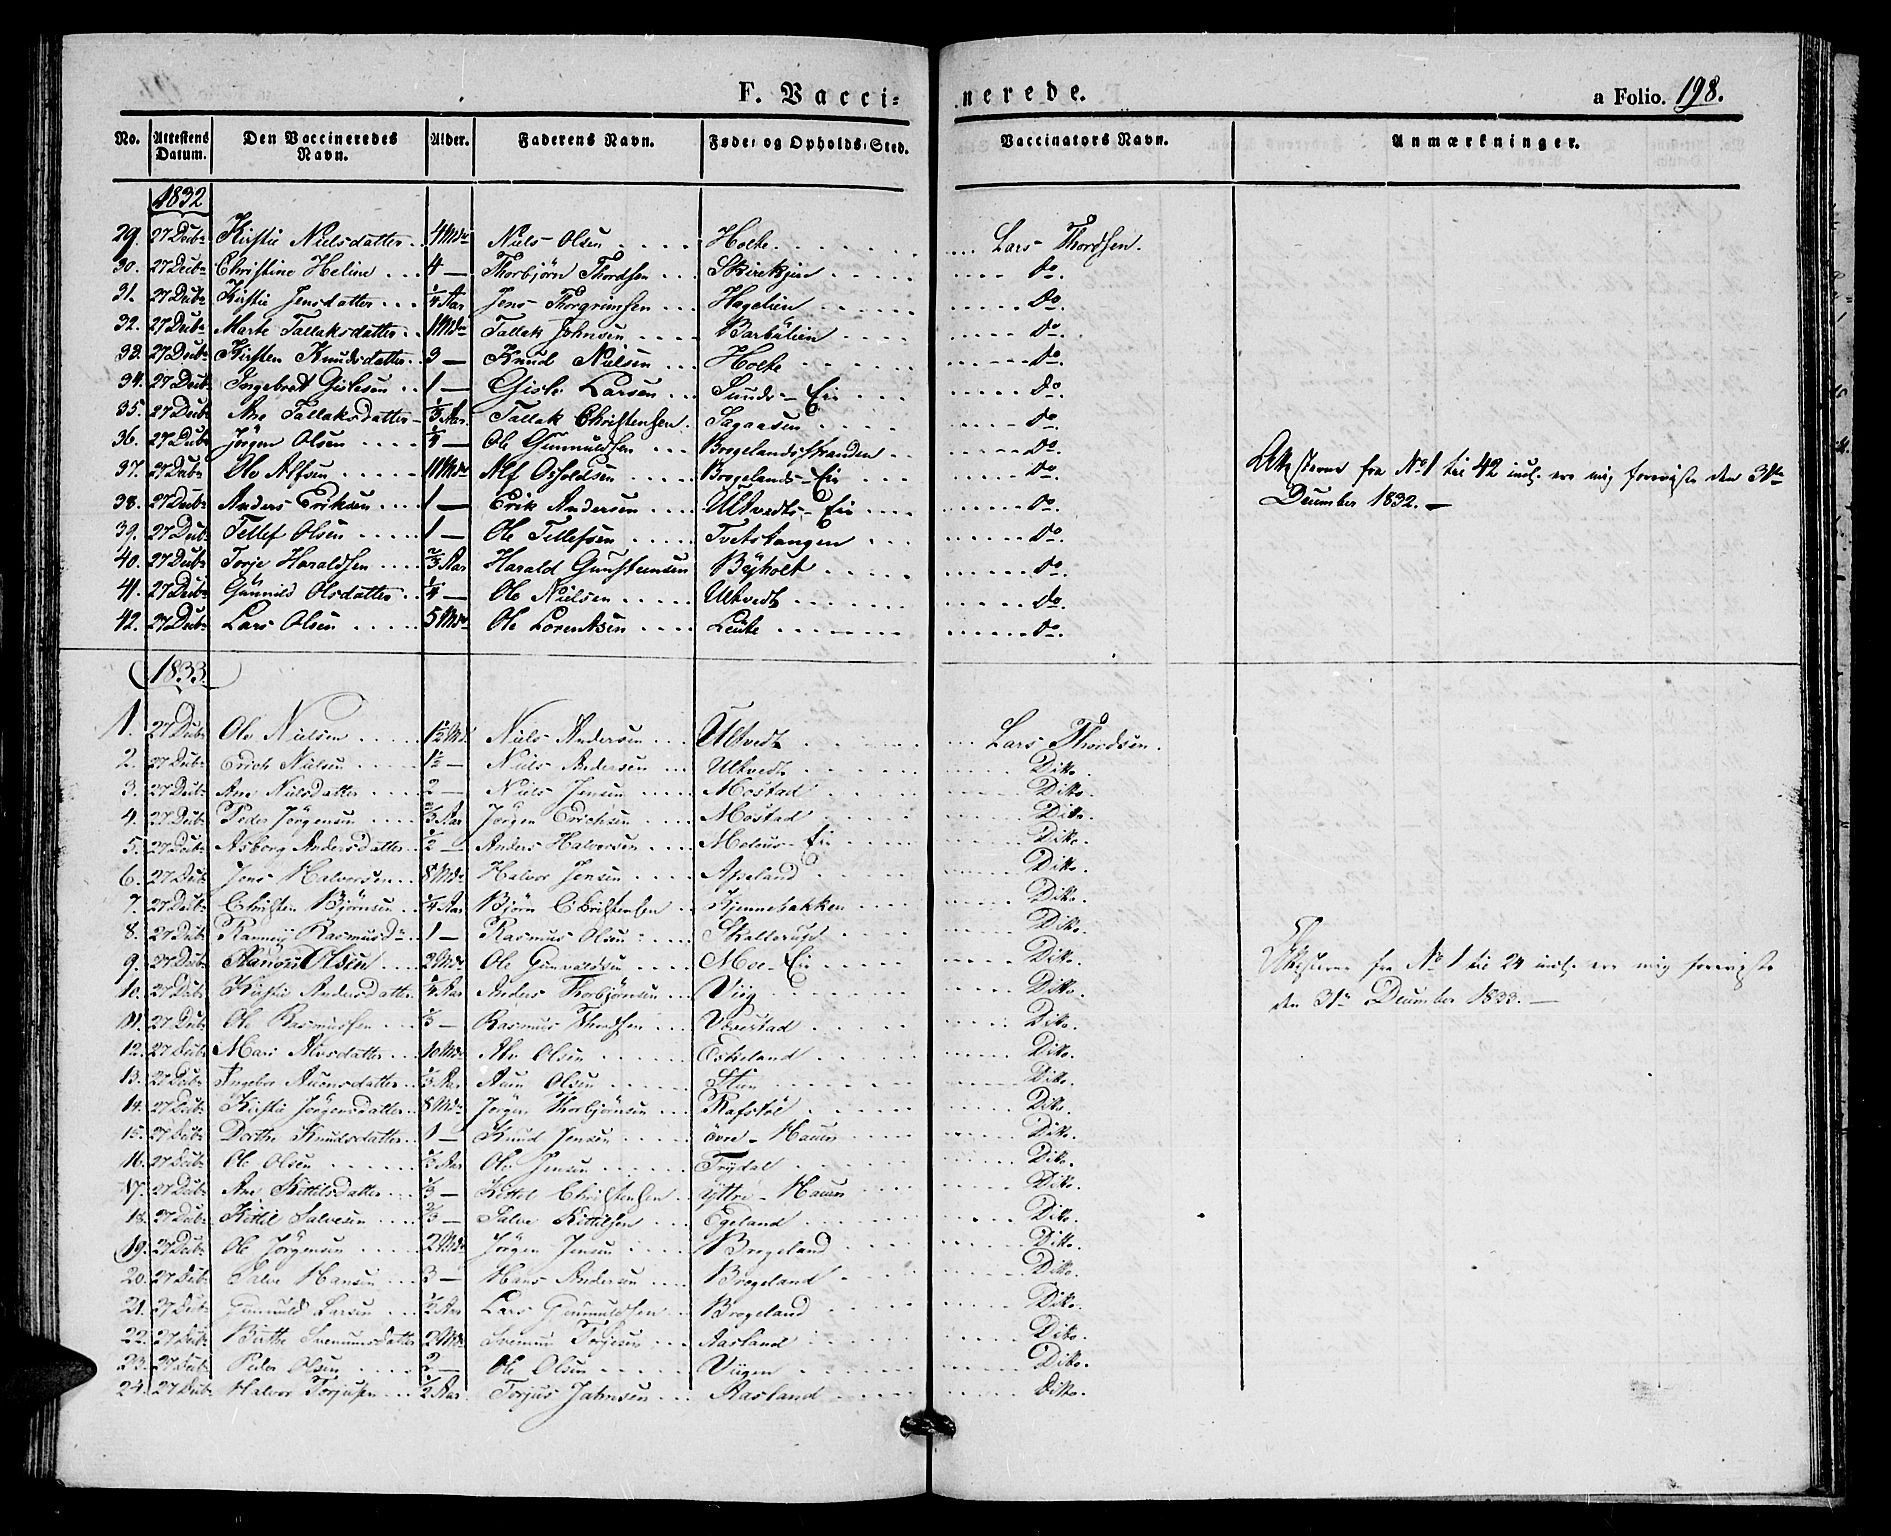 F. Vaccinerede. a Folio. 198.
No. Attestens Datum. Den Vaccineredes Navn. Alder. Faderens Navn. Føde- og Opholds-Sted. Vaccinators Navn. Anmærkninger.
1832
29. 27 Decbr Kirstie Nielsdatter 4 Mdr Niels Olsen Holte Lars Thordsen.
30. 27 Decbr Christine Heline 4 — Thorbjørn Thordsen Skirekjen do.
31. 27 Decbr Kirstie Jensdatter 1/4 Aar Jens Thorgrimsen Hagelien do.
32. 27 Decbr Marte Tallaksdatter 1 Mdr Tallak Johnsen Barbulien do.
33. 27 Decbr Kirsten Knudsdatter 3 — Knud Nielsen Holte do.
34. 27 Decbr Ingebret Gislesen 1 — Gisle Larsen Sunds-Eie do.
35. 27 Decbr Ane Tallaksdatter 1/3 Aar Tallak Christensen Sagaasen do.
36. 27 Decbr Jörgen Olsen 1/4 — Ole Gunnuldsen Brægelandsstranden do.
37. 27 Decbr Ole Alfsen Mdr Alf Osfoldsen Brægelands-Eie do.
38. 27 Decbr Anders Eriksen 1 — Erik Andersen Ultvedts-Eie do.
39. 27 Decbr Tellef Olsen 1 — Ole Tellefsen Tvetstangen do.
40. 27 Decbr Torje Haraldsen 2/3 Aar Harald Gunsteensen Byholt do.
41. 27 Decbr Gunnild Olsdatter 1/4 — Ole Nielsen Ultvedt do.
42. 27 Decbr Lars Olsen 5 Mdr Ole Lorentsen Leite do.
Attesterne fra No 1 til 42 incl. ere mig foreviiste den 31te
December 1832. —
1833
1. 27 Decbr Ole Nielsen 1½ Md. Niels Andersen Ultvedt Lars Thordsen.
2. 27 Decbr Erich Nielsen 1½ — Niels Andersen Ultvedt Ditto.
3. 27 Decbr Ane Nielsdatter 2 — Niels Jensen Mostad Ditto.
4. 27 Decbr Peder Jörgensen 2/3 Aar Jörgen Erichsen Mostad Ditto.
5. 27 Decbr Asborg Andersdatter 1/2 — Anders Halvorsen Eie Ditto.
6. 27 Decbr Jens Halvorsen 8 Mdr Halvor Jensen Apeland Ditto.
7. 27 Decbr Christen Bjørnsen 1/4 Aar Bjørn Christensen Kjennebakken Ditto.
8. 27 Decbr Ranneij Rasmusdr 1 — Rasmus Olsen Ditto.
9. 27 Decbr Olsen 2 Mdr Ole Gunvaldsen Moe-Eie Ditto.
10. 27 Decbr Kirstie Andersdatter 1/4 Aar Anders Thorbjörnsen Viig Ditto.
11. 27 Decbr Ole Rasmussen 1/3 — Rasmus Thordsen Værestad Ditto.
12. 27 Decbr Mari Alvsdatter 10 Mdr Alv Olsen Eskeland Ditto.
13. 27 Decbr Ingebor Auensdatter 1/3 Aar Auen Olsen Steen Ditto.
14. 27 Decbr Kirstie Jörgensdatter 8 Mdr Jörgen Thorbjörnsen Rafstöl Ditto.
15. 27 Decbr Dorthe Knudsdatter 1 — Knud Jensen övre-Hauen Ditto.
16. 27 Decbr Ole Olsen Aar Ole Jensen Trydal Ditto.
17. 27 Decbr Ane Kittilsdatter 1/3 — Kittel Christensen yttre-Hauen Ditto.
18. 27 Decbr Kittil Salvesen 2/3 — Salve Kittilsen Egeland Ditto.
19. 27 Decbr Ole Jörgensen 2 Mdr Jörgen Jensen Brægeland Ditto.
20. 27 Decbr Salve Hansen 3 — Hans Andersen Brægeland Ditto.
21. 27 Decbr Gunnuld Larsen 1/2 Aar Lars Gunnuldsen Brægeland Ditto.
22. 27 Decbr Birthe Svenumsdatter 2 Mdr Svenum Torjesen Aasland Ditto.
23. 27 Decbr Peder Olsen 2 — Ole Olsen Viigen Ditto.
24. 27 Decbr Halvor Torjussen 1/2 Aar Torjus Jahnsen Aasland Ditto.
Attesterne fra No 1 til 24 incl. ere mig foreviiste
den 31te December 1833. —